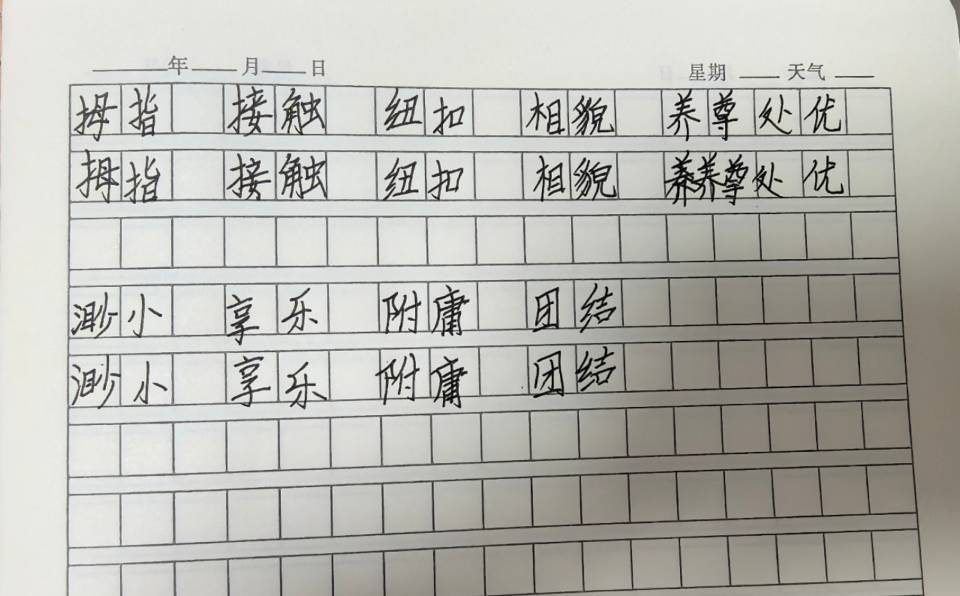 年 月 日 星期 天气
拇指 接触 纽扣 相貌 养尊处优
拇指 接触 纽扣 相貌 养养尊处优
渺小 享乐 附庸 团结
渺小 享乐 附庸 团结